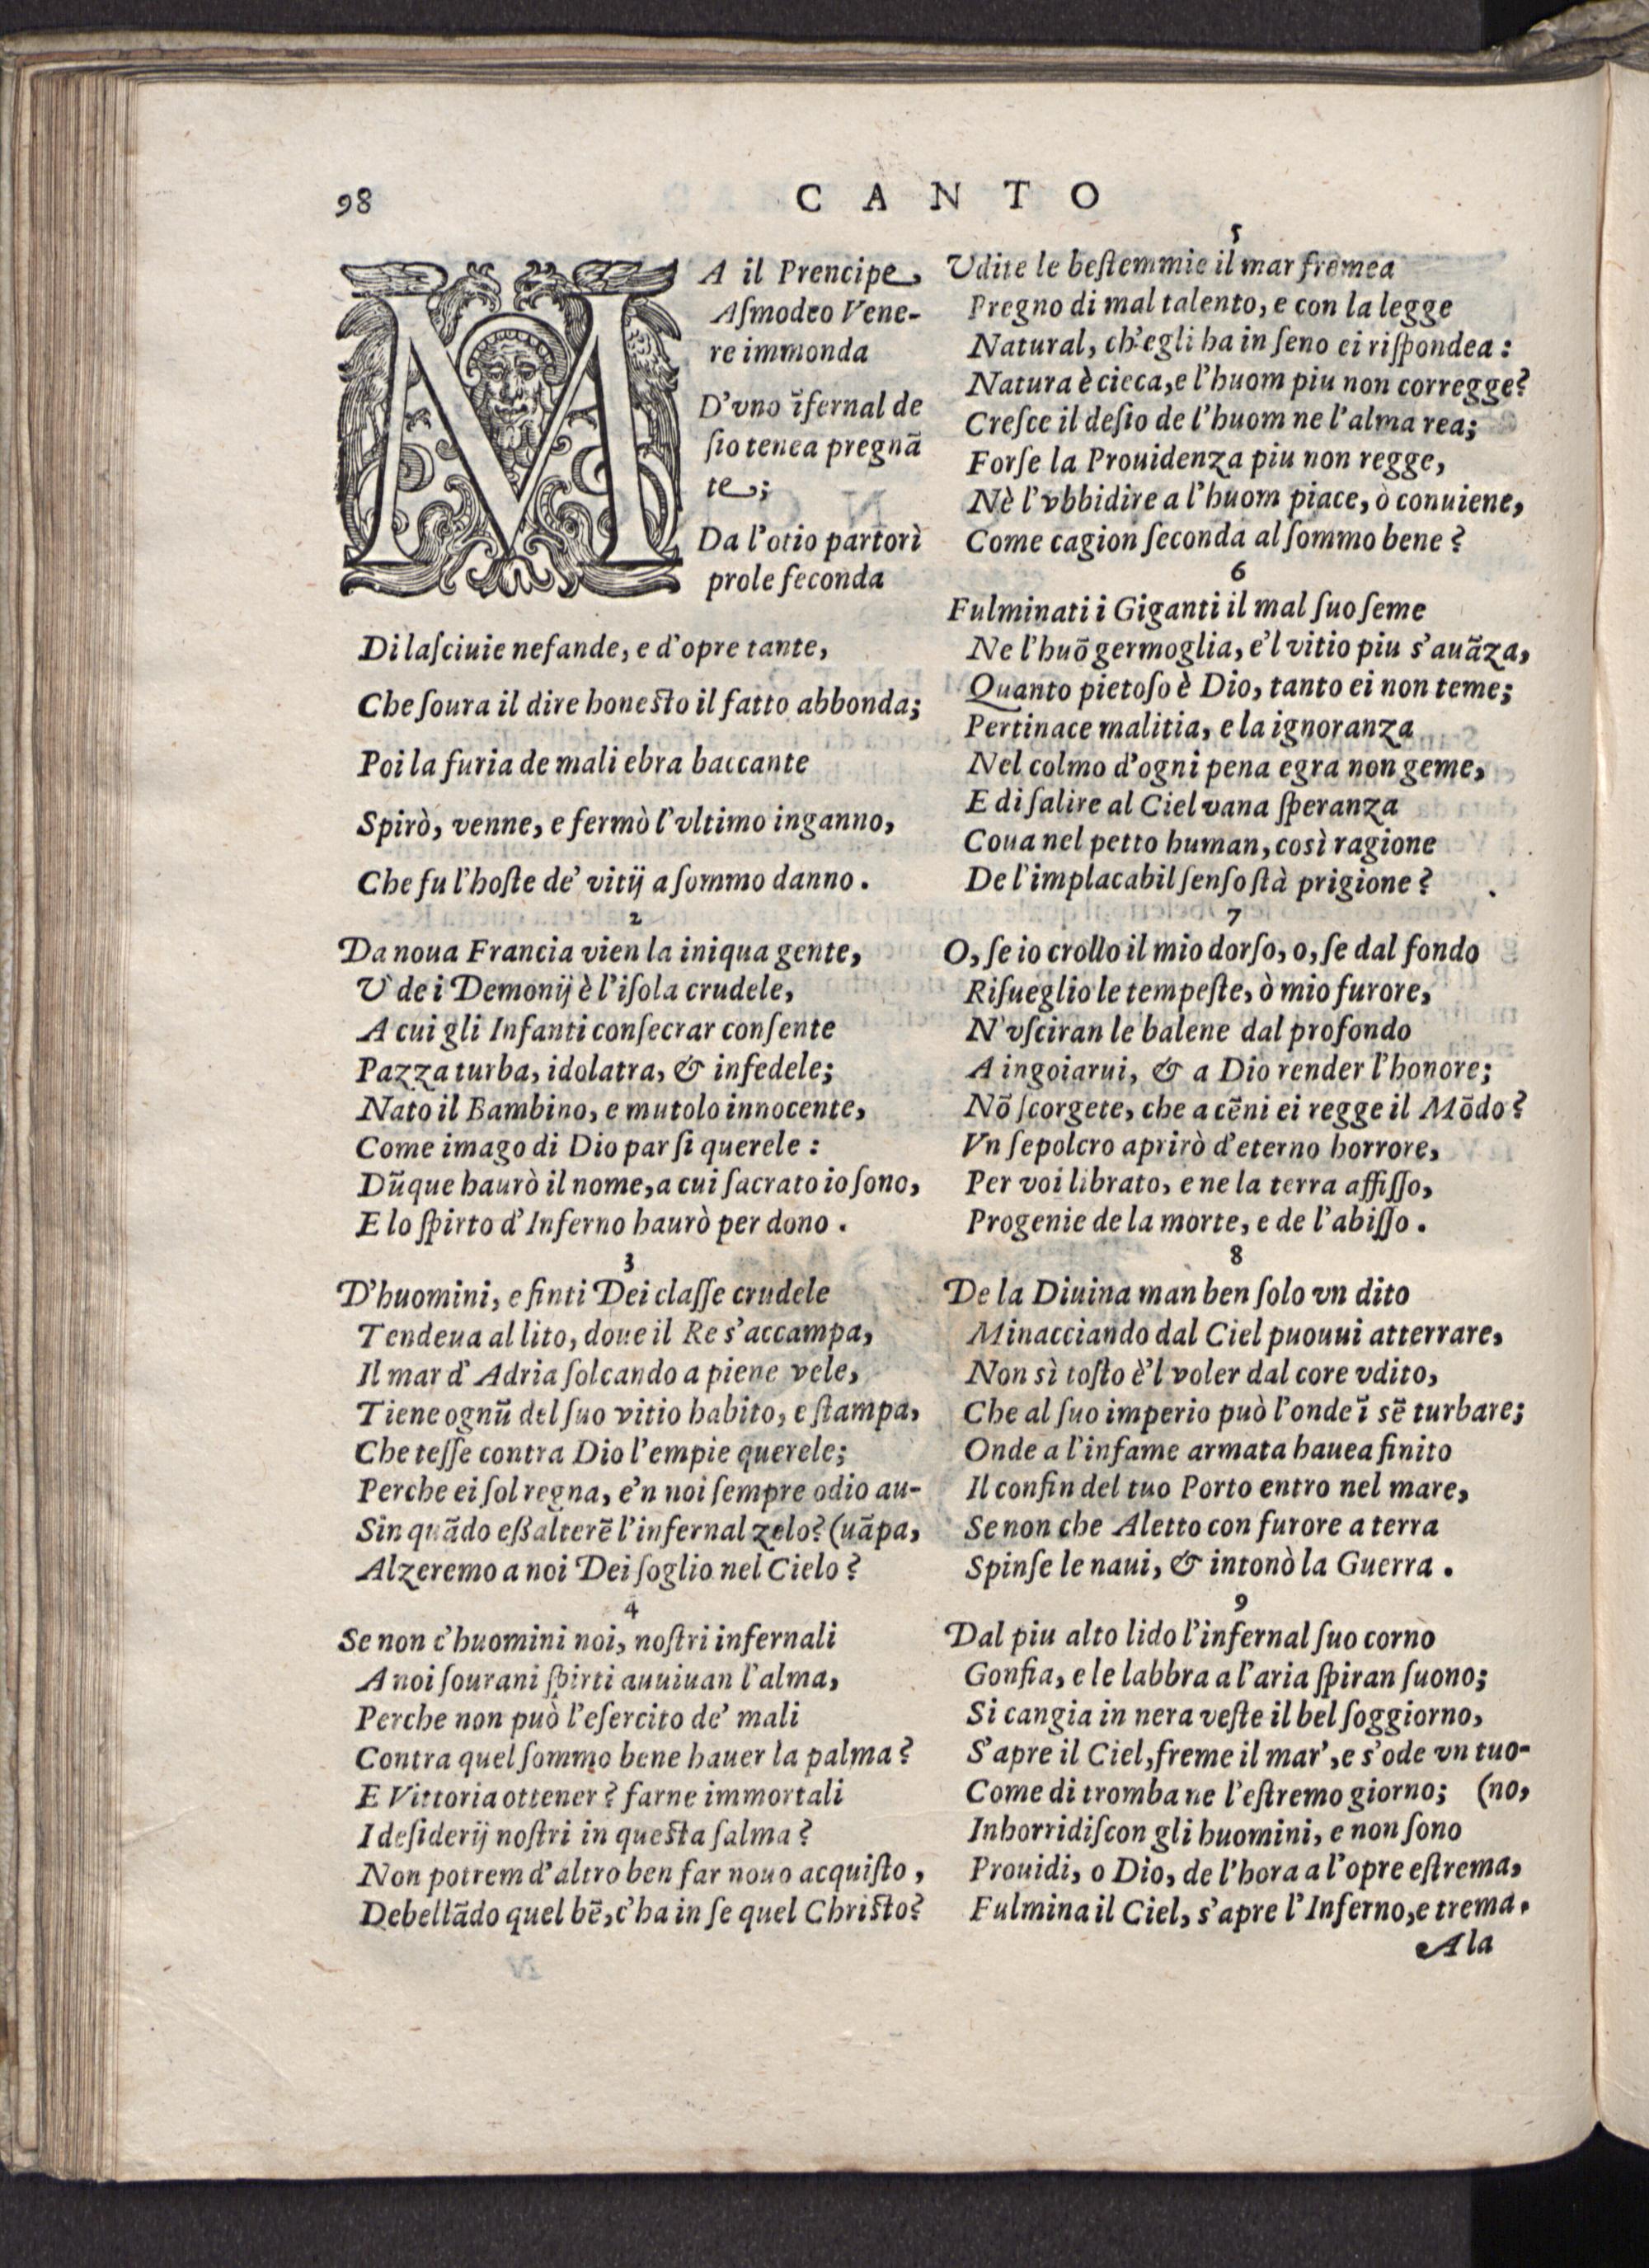 98
CANTO
MA il Prencipe,
Aſmodeo Vene-
re immonda
D'vno ĩfernal de
ſio tenea pregnã
te;
Da l'otio partorì
prole feconda
Di laſciuie nefande, e d'opre tante,
Che ſoura il dire honeſto il fatto abbonda;
Poi la furia de mali ebra baccante
Spirò, venne, e fermò l'vltimo inganno,
Che fu l'hoſte de' vitij a ſommo danno.
2
Da noua Francia vien la iniqua gente,
V' de i Demonij è l'iſola crudele,
A cui gli Infanti conſecrar conſente
Pazza turba, idolatra, & infedele;
Nato il Bambino, e mutolo innocente,
Come imago di Dio par ſi querele:
Dũque haurò il nome, a cui ſacrato io ſono,
E lo ſpirto d'Inferno haurò per dono.
3
D'huomini, e finti Dei claſſe crudele
Tendeua al lito, doue il Re s'accampa,
Il mar d'Adria ſolcando a piene vele,
Tiene ognũ del ſuo vitio habito, e ſtampa,
Che teſſe contra Dio l'empie querele;
Perche ei ſol regna, e'n noi ſempre odio au-
Sin quãdo eßalterẽ l'infernal zelo? (uãpa,
Alzeremo a noi Dei ſoglio nel Cielo?
4
Se non c'huomini noi, noſtri infernali
A noi ſourani ſpirti auuiuan l'alma,
Perche non può l'eſercito de' mali
Contra quel ſommo bene hauer la palma?
E Vittoria ottener? farne immortali
I deſiderij noſtri in queſta ſalma?
Non potrem d'altro ben far nouo acquiſto,
Debellãdo quel bẽ, c'ha in ſe quel Chriſto?
5
Vdite le beſtemmie il mar fremea
Pregno di mal talento, e con la legge
Natural, ch'egli ha in ſeno ei riſpondea:
Natura è cieca, e l'huom piu non corregge?
Creſce il deſio de l'huom ne l'alma rea;
Forſe la Prouidenza piu non regge,
Nè l'vbbidire a l'huom piace, ò conuiene,
Come cagion ſeconda al ſommo bene?
6
Fulminati i Giganti il mal ſuo ſeme
Ne l'huõ germoglia, e'l vitio piu s'auãza,
Quanto pietoſo è Dio, tanto ei non teme;
Pertinace malitia, e la ignoranza
Nel colmo d'ogni pena egra non geme,
E di ſalire al Ciel vana ſperanza
Coua nel petto human, così ragione
De l'implacabil ſenſo ſtà prigione?
7
O, ſe io crollo il mio dorſo, o, ſe dal fondo
Riſueglio le tempeſte, ò mio furore,
N'vſciran le balene dal profondo
A ingoiarui, & a Dio render l'honore;
Nõ ſcorgete, che a cẽni ei regge il Mõdo?
Vn ſepolcro aprirò d'eterno horrore,
Per voi librato, e ne la terra affiſſo,
Progenie de la morte, e de l'abiſſo.
8
De la Diuina man ben ſolo vn dito
Minacciando dal Ciel puouui atterrare,
Non sì toſto è'l voler dal core vdito,
Che al ſuo imperio può l'onde ĩ sẽ turbare;
Onde a l'infame armata hauea finito
Il confin del tuo Porto entro nel mare,
Se non che Aletto con furore a terra
Spinſe le naui, & intonò la Guerra.
9
Dal piu alto lido l'infernal ſuo corno
Gonfia, e le labbra a l'aria ſpiran ſuono;
Si cangia in nera veſte il bel ſoggiorno,
S'apre il Ciel, freme il mar', e s'ode vn tuo-
Come di tromba ne l'eſtremo giorno; (no,
Inhorridiſcon gli huomini, e non ſono
Prouidi, o Dio, de l'hora a l'opre eſtrema,
Fulmina il Ciel, s'apre l'Inferno, e trema.
A la